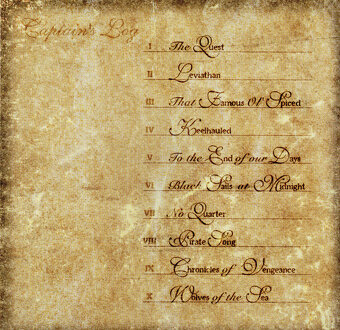 Captain's Log
I The Quest
II Leviathan
III That Famous Ol' Spiced
IV Keelhauled
V To the End of our Days
VI Black Sails at Midnight
VII No Quarter
VIII Pirate Song
IX Chronicles of Vengeance
X Wolves of the Sea